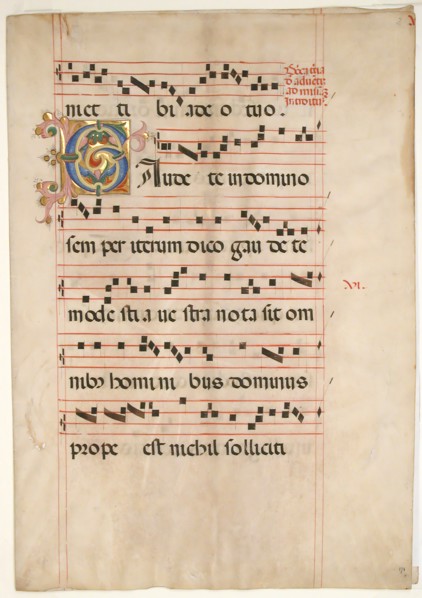 niet ti bi a deo tuo.
Dñica tercia
d aduētu
ad missã
Introitus
GAude te in domino
sem per iterum dico gau de te
mode sti a ue stra no ta sit om
VI.
nibꝫ homi ni bus dominus
prope est nichil solliciti